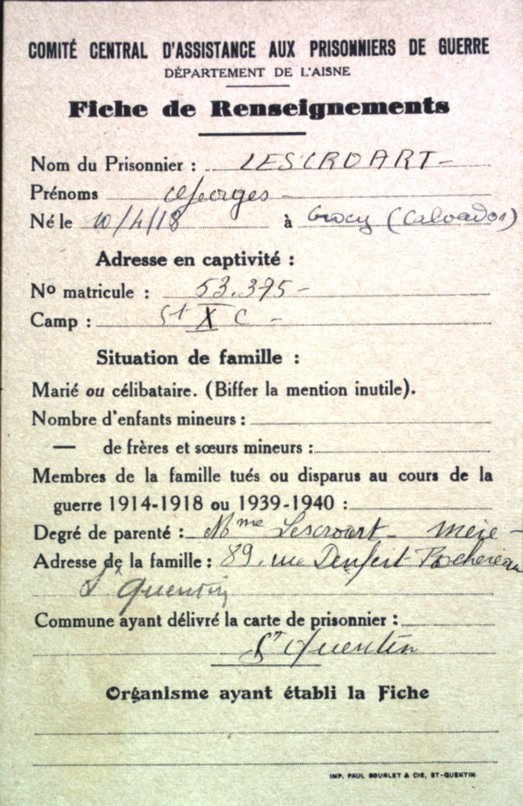 COMITÉ CENTRAL D'ASSISTANCE AUX PRISONNIERS DE GUERRE
DÉPARTEMENT DE L'AISNE
Fiche de Renseignements
Nom du Prisonnier : LESCROART -
Prénoms Georges -
Né le 10/4/18 à (Calvados)
Adresse en captivité :
No matricule : 53.375 -
Camp : St X C -
Situation de famille :
Marié ou célibataire. (Biffer la mention inutile).
Nombre d'enfants mineurs :
— de frères et sœurs mineurs :
Membres de la famille tués ou disparus au cours de la
guerre 1914-1918 ou 1939-1940 :
Degré de parenté : Mme Lescroart - mère -
Adresse de la famille : 89, rue Denfert Rochereau
St Quentin
Commune ayant délivré la carte de prisonnier :
St Quentin
Organisme ayant établi la Fiche
IMP. PAUL BOURLET & CIE, ST-QUENTIN